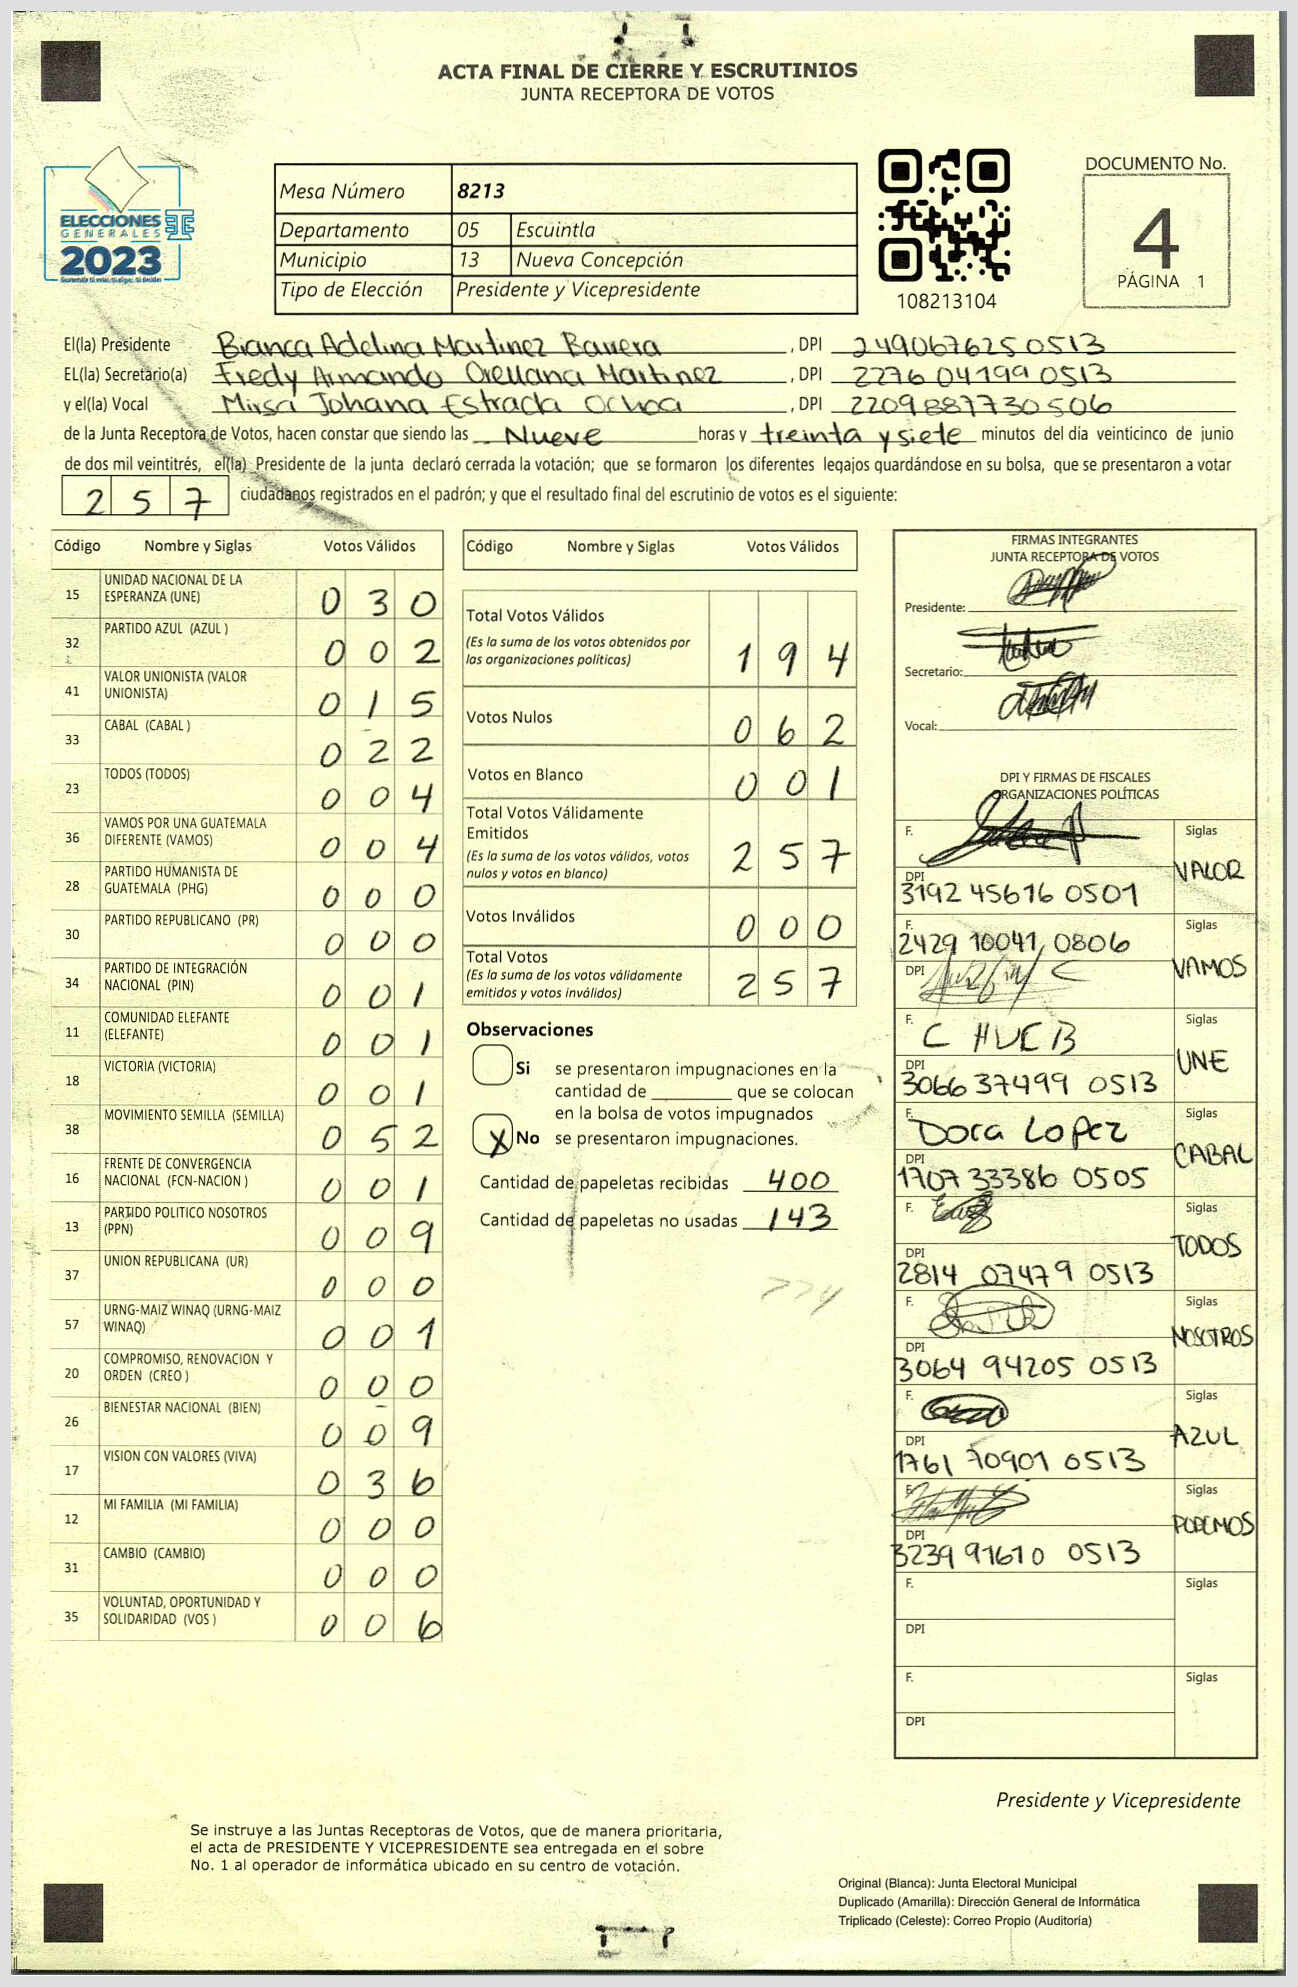 ACTA FINAL DE CIERRE Y ESCRUTINIOS
JUNTA RECEPTORA DE VOTOS
ELECCIONES
GENERALES
2023
Mesa Número 8213
Departamento 05 Escuintla
Municipio 13 Nueva Concepción
Tipo de Elección Presidente y Vicepresidente
108213104
DOCUMENTO No.
4
PÁGINA 1
El(la) Presidente Bianca Adelina Martinez Barrera , DPI 2490676250513
EL(la) Secretario(a) Fredy Armando Orellana Martinez , DPI 2276 04199 0513
y el(la) Vocal Mirsa Johana Estrada Ochoa , DPI 2209887730506
de la Junta Receptora de Votos, hacen constar que siendo las Nueve horas y treinta y siete minutos del día veinticinco de junio
de dos mil veintitrés, el(la) Presidente de la junta declaró cerrada la votación; que se formaron los diferentes legajos guardándose en su bolsa, que se presentaron a votar
257 ciudadanos registrados en el padrón; y que el resultado final del escrutinio de votos es el siguiente:
Código Nombre y Siglas Votos Válidos
15 UNIDAD NACIONAL DE LA ESPERANZA (UNE) 030
32 PARTIDO AZUL (AZUL ) 002
41 VALOR UNIONISTA (VALOR UNIONISTA) 015
33 CABAL (CABAL ) 022
23 TODOS (TODOS) 004
36 VAMOS POR UNA GUATEMALA DIFERENTE (VAMOS) 004
28 PARTIDO HUMANISTA DE GUATEMALA (PHG) 000
30 PARTIDO REPUBLICANO (PR) 000
34 PARTIDO DE INTEGRACIÓN NACIONAL (PIN) 001
11 COMUNIDAD ELEFANTE (ELEFANTE) 001
18 VICTORIA (VICTORIA) 001
38 MOVIMIENTO SEMILLA (SEMILLA) 052
16 FRENTE DE CONVERGENCIA NACIONAL (FCN-NACION ) 001
13 PARTIDO POLITICO NOSOTROS (PPN) 009
37 UNION REPUBLICANA (UR) 000
57 URNG-MAIZ WINAQ (URNG-MAIZ WINAQ) 001
20 COMPROMISO, RENOVACION Y ORDEN (CREO ) 000
26 BIENESTAR NACIONAL (BIEN) 009
17 VISION CON VALORES (VIVA) 036
12 MI FAMILIA (MI FAMILIA) 000
31 CAMBIO (CAMBIO) 000
35 VOLUNTAD, OPORTUNIDAD Y SOLIDARIDAD (VOS ) 006
Código Nombre y Siglas Votos Válidos
Total Votos Válidos 194
(Es la suma de los votos obtenidos por
las organizaciones políticas)
Votos Nulos 062
Votos en Blanco 001
Total Votos Válidamente
Emitidos 257
(Es la suma de los votos válidos, votos
nulos y votos en blanco)
Votos Inválidos 000
Total Votos 257
(Es la suma de los votos válidamente
emitidos y votos inválidos)
Observaciones
Si se presentaron impugnaciones en la
cantidad de ________ que se colocan
en la bolsa de votos impugnados
X No se presentaron impugnaciones.
Cantidad de papeletas recibidas 400
Cantidad de papeletas no usadas 143
FIRMAS INTEGRANTES
JUNTA RECEPTORA DE VOTOS
Presidente:
Secretario:
Vocal:
DPI Y FIRMAS DE FISCALES
ORGANIZACIONES POLÍTICAS
F. Siglas
VALOR
DPI
3192 45616 0501
F. Siglas
2429 10041 0806
VAMOS
DPI
F. Siglas
C HUEB
UNE
DPI
3066 37499 0513
F. Siglas
Dora Lopez
CABAL
DPI
1707 33386 0505
F. Siglas
TODOS
DPI
2814 07479 0513
F. Siglas
NOSOTROS
DPI
3064 94205 0513
F. Siglas
AZUL
DPI
1761 70901 0513
F. Siglas
PODEMOS
DPI
3239 91610 0513
F. Siglas
DPI
F. Siglas
DPI
Presidente y Vicepresidente
Se instruye a las Juntas Receptoras de Votos, que de manera prioritaria,
el acta de PRESIDENTE Y VICEPRESIDENTE sea entregada en el sobre
No. 1 al operador de informática ubicado en su centro de votación.
Original (Blanca): Junta Electoral Municipal
Duplicado (Amarilla): Dirección General de Informática
Triplicado (Celeste): Correo Propio (Auditoría)